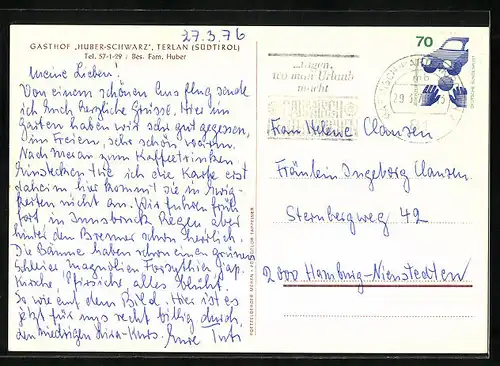 27.3.76
GASTHOF „HUBER-SCHWARZ", TERLAN (SÜDTIROL)
Tel. 57-1-29 / Bes. Fam. Huber
Meine Lieben!
Von einem schönen Ausflug sende
ich Euch herzliche Grüsse. Hier im
Garten haben wir sehr gut gegessen,
im Freien, sehr schön warm.
Nach Meran zum Kaffeetrinken.
Einstecken tue ich die Karte erst
daheim hier kommt sie in Ewig-
keiten nicht an. Wir fuhren früh
fort in Innsbruck Regen aber
hinter den Brenner schon herrlich.
Die Bäume haben schon einen grünen
Schleier Magnolien Forsythien Jap.
Kirsche, Pfirsiche, alles blüht.
So wie auf dem Bild. Hier ist es
jetzt für uns recht billig durch
den niedrigen Lira-Kurs. Eure
70
wo man Urlaub
macht
Frau Helene Clausen
Fräulein Ingeborg Clausen
Sternbergweg 42
2000 Hamburg-Nienstedten